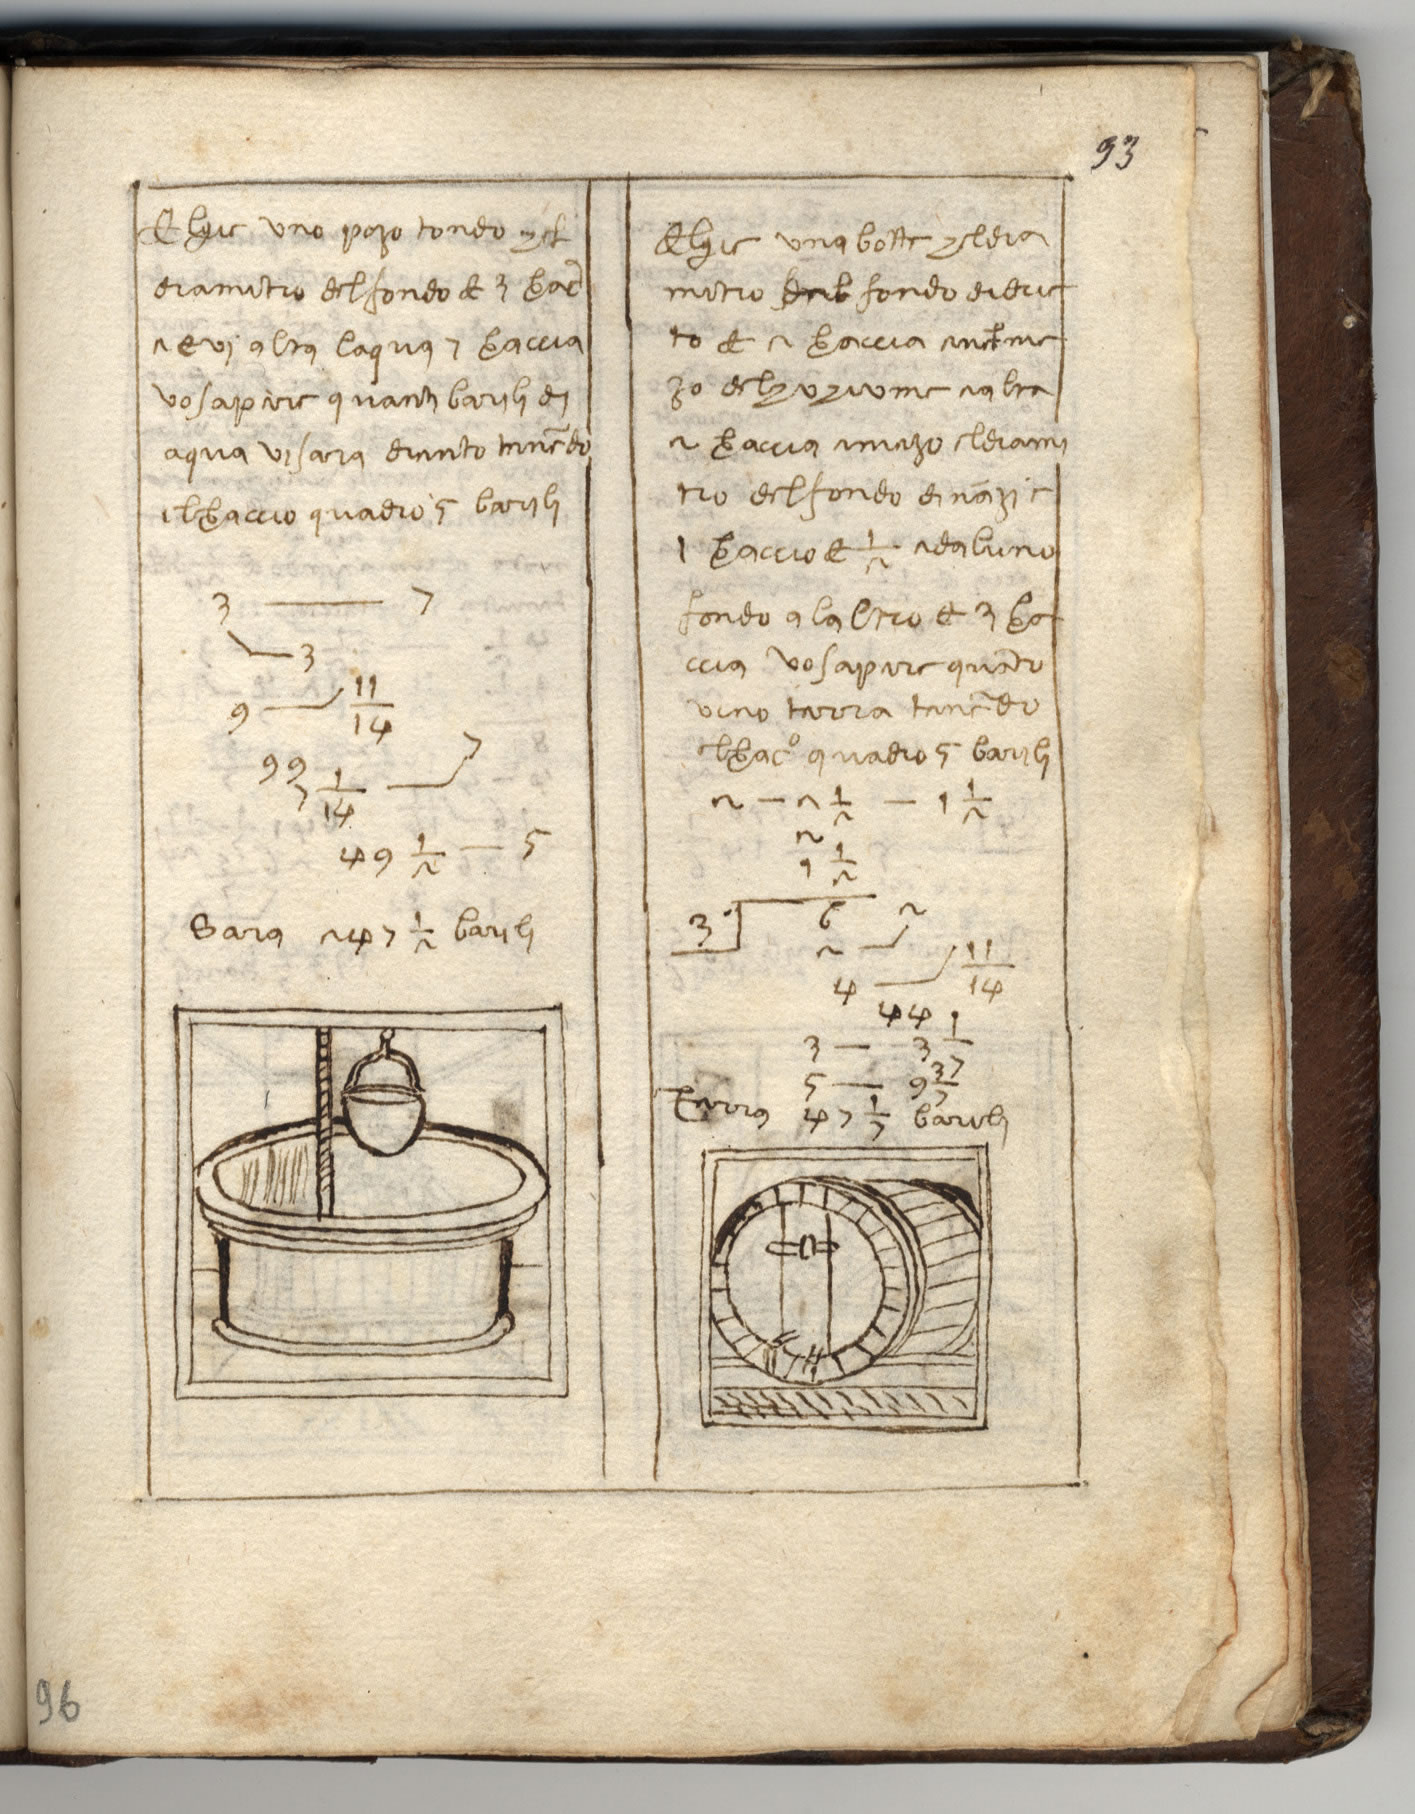 93
Eglie uno pozo tondo ch el
diamitro del fondo è 3 bracc
e vi alta laqua 7 braccia
vo sapere quanti barili di
aqua vi sara drento tenēdo
il braccio quadro 5 barili
3 — 7
3
9 — 11/14
99
7 1/14 — 7
49 1/2 — 5
Sara 247 1/2 barili
Eglie una botte ch el dia
mitro del fondo dirie
to è 2 braccia
2 braccia e mezo el diami
tro del fondo dināzi è
1 braccio e 1/2 e da luno
fondo a laltro è 3 bra
ccia vo sapere quāto
vino terra tenēdo
el braco quadro 5 barili
2 — 2 1/2 — 1 1/2
2
1 1/2
3 6 2
2
4 — 11/14
44
3 — 3 1/7
5 — 9 3/7
Terra 47 1/7 barili
96